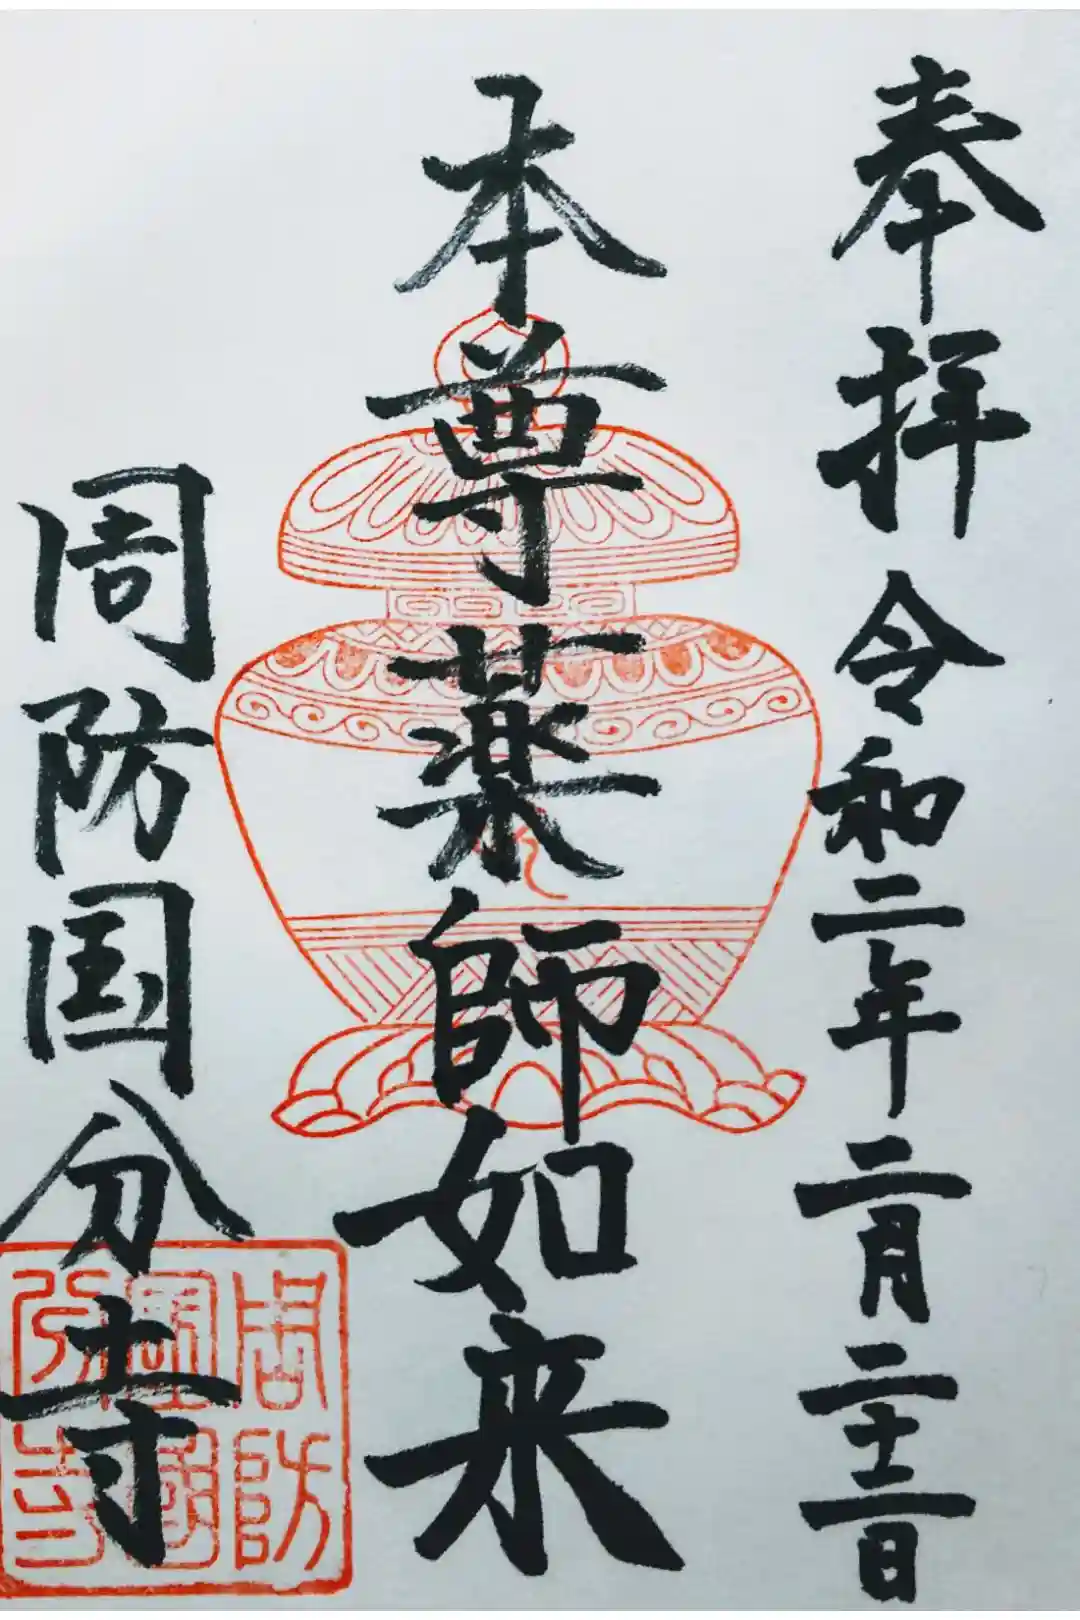 奉拝 令和二年二月二十二日
本尊薬師如来
周防国分寺
周防
國
分寺